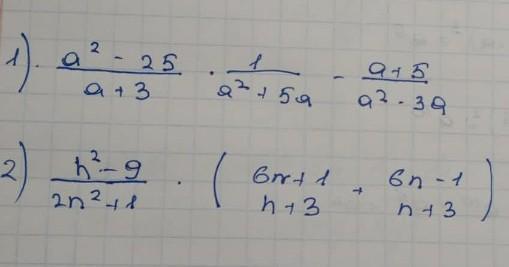 1). \frac{a^2 - 25}{a + 3} \cdot \frac{1}{a^2 + 5a} - \frac{a + 5}{a^2 - 3a}
2) \frac{n^2 - 9}{2n^2 + 1} \cdot \left( \frac{6n + 1}{n + 3} + \frac{6n - 1}{n + 3} \right)